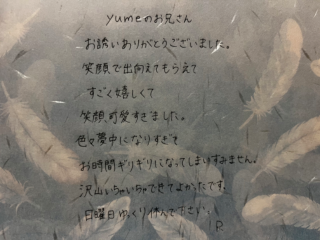 yumeのお兄さん
お誘いありがとうございました。
笑顔で出向えてもらえて
すごく嬉しくて
笑顔可愛すぎました。
色々夢中になりすぎて
お時間ギリギリになってしまいすみません。
沢山いちゃいちゃできてよかったです。
日曜日ゆっくり休んで下さい。
R.